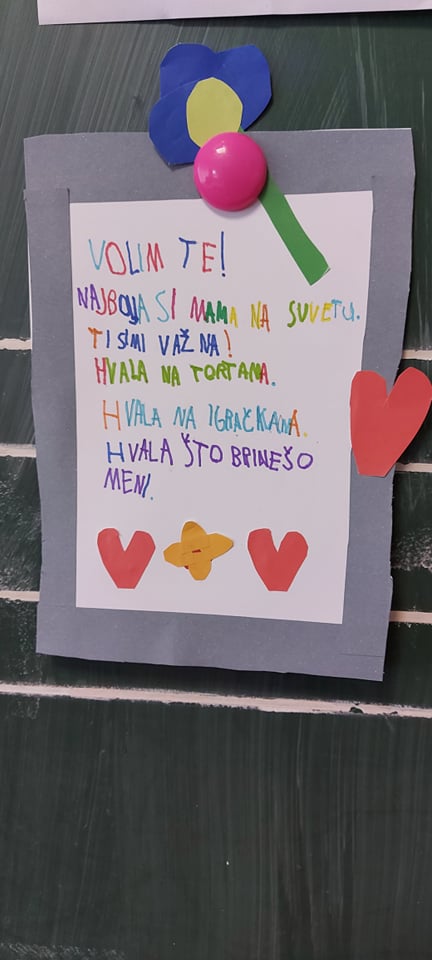 VOLIM TE!
NAJBOLJA SI MAMA NA SUVETU.
TI SI MI VAŽNA!
HVALA NA TORTAMA.
HVALA NA IGRAČKAMA.
HVALA ŠTO BRINEŠ O
MENI.